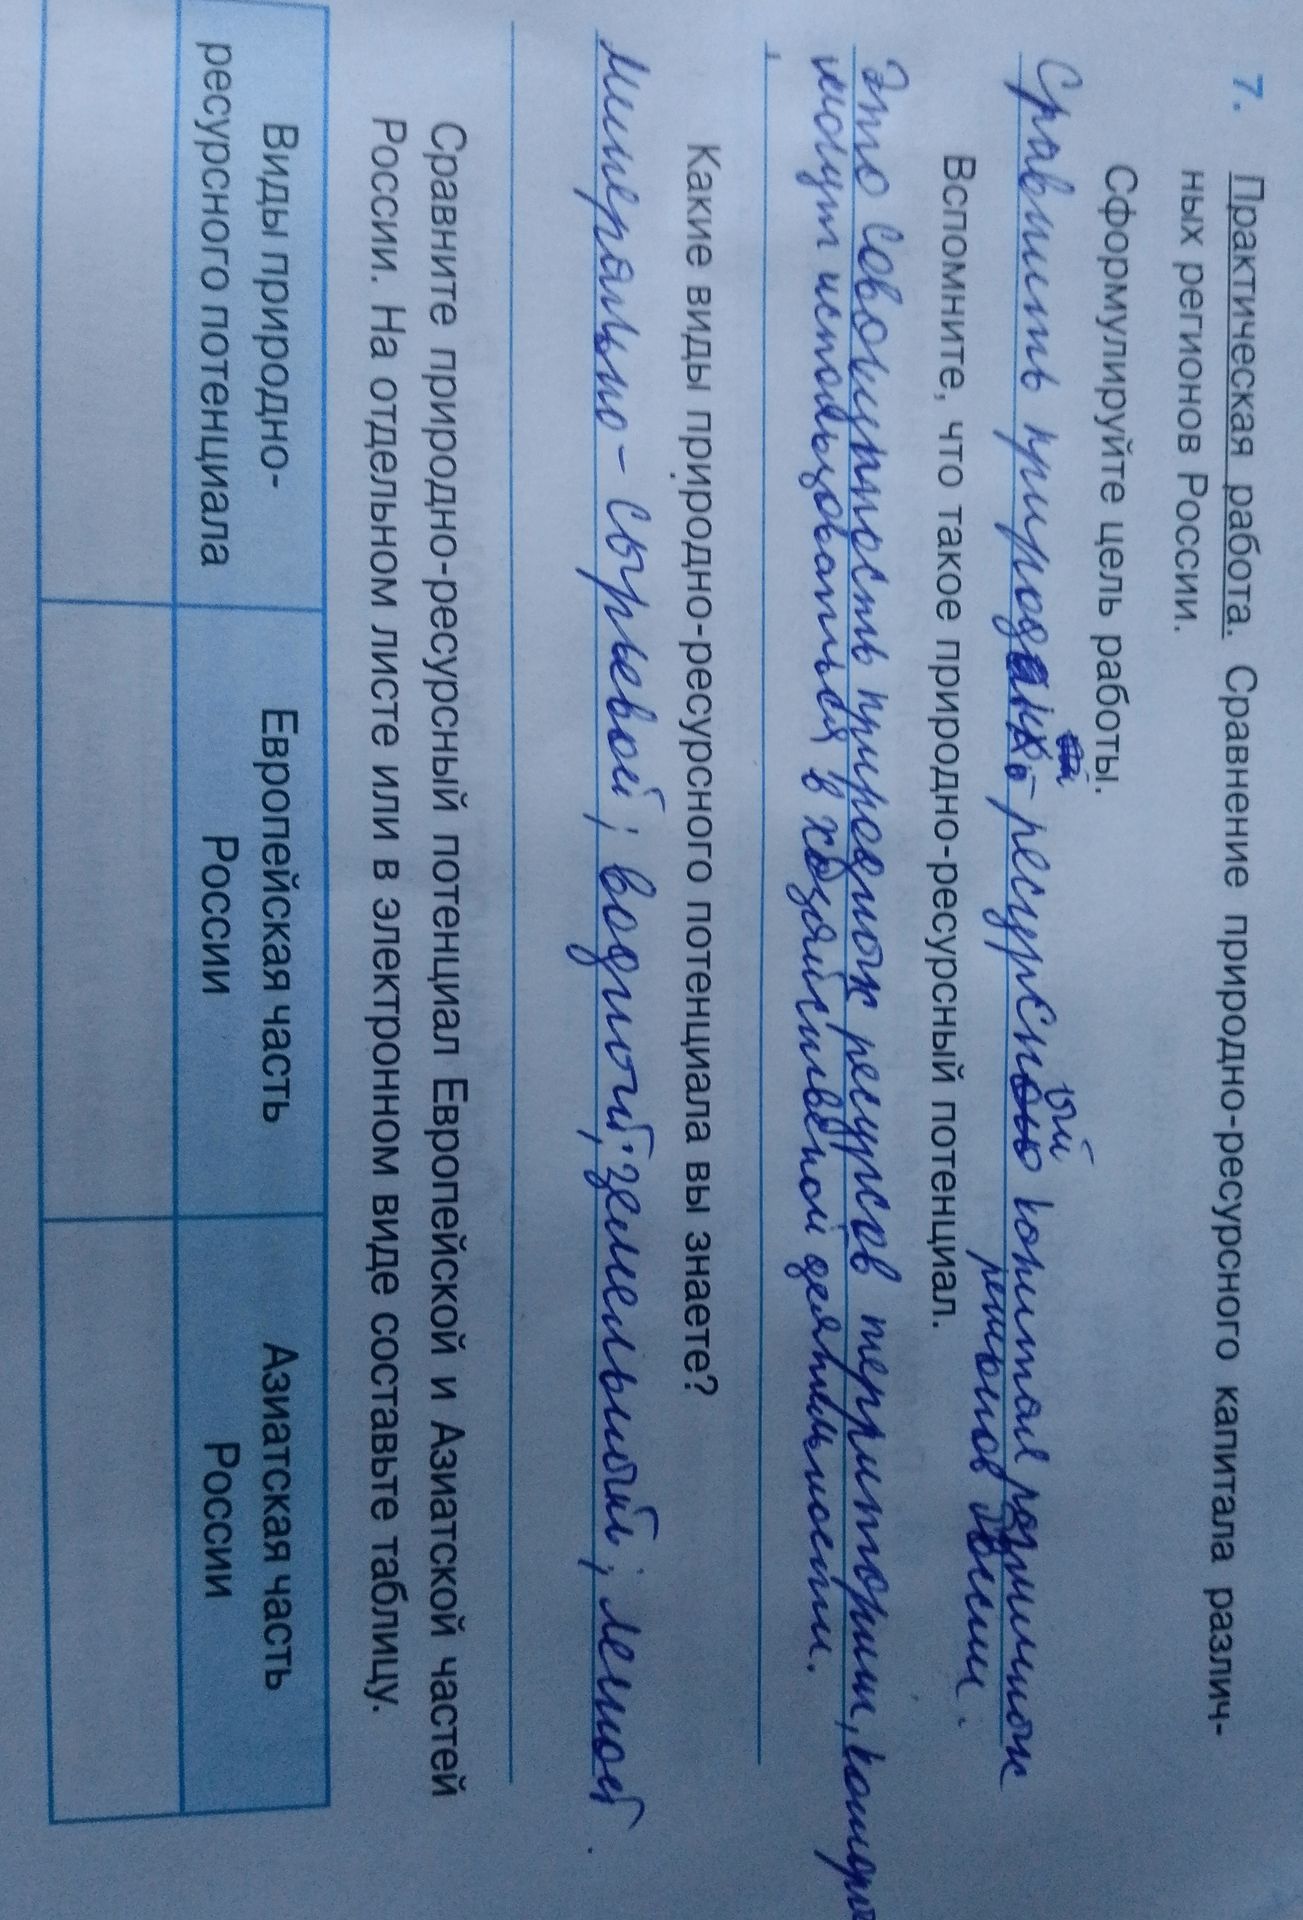 7. Практическая работа. Сравнение природно-ресурсного капитала различ-
ных регионов России.
Сформулируйте цель работы.
Сравнить природно-ресурсный капитал различных
регионов
Вспомните, что такое природно-ресурсный потенциал.
Это совокупность природных ресурсов территории, которые
могут использоваться в хозяйственной деятельности.
Какие виды природно-ресурсного потенциала вы знаете?
минерально-сырьевой; водный; земельный; лесной.
Сравните природно-ресурсный потенциал Европейской и Азиатской частей
России. На отдельном листе или в электронном виде составьте таблицу.
Виды природно-
ресурсного потенциала
Европейская часть
России
Азиатская часть
России